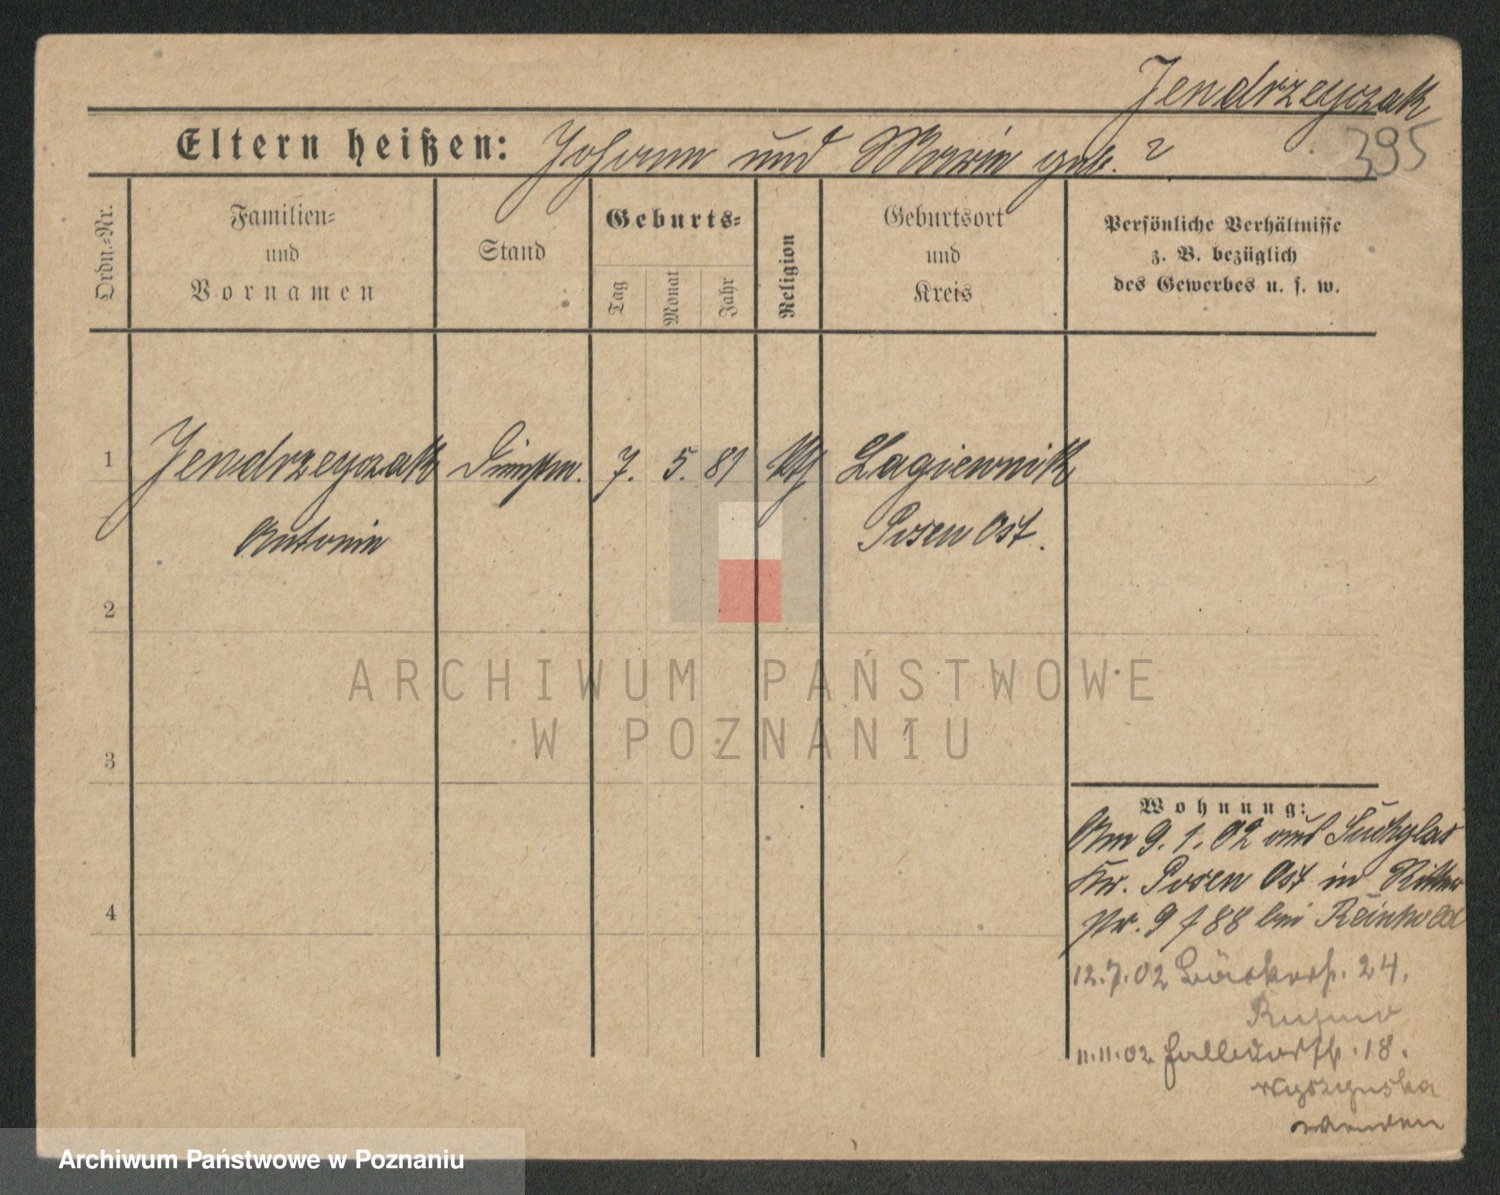 Jendrzeyczak
Eltern heißen: Johann und Marie geb. ?
395
Ordn.=Nr.
Familien=
und
Vornamen
Stand
Geburts=
Tag
Monat
Jahr
Religion
Geburtsort
und
Kreis
Persönliche Verhältnisse
z. B. bezüglich
des Gewerbes u. s. w.
1 Jendrzeyczak Dienstm. 7. 5. 81 Kth Lagiewnik
Antonie Posen Ost.
2
ARCHIWUM PAŃSTWOWE
W POZNANIU
3
Wohnung:
Am 9.1.02 aus Suchylas
Kr. Posen Ost in Ritter
9 f 88 bei Reinhold
12.7.02 Bäckerstr. 24.
11.11.02 18.
wenden
4
Archiwum Państwowe w Poznaniu